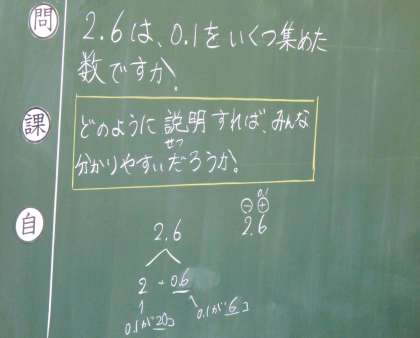 問
2.6は、0.1をいくつ集めた
数ですか。
課
どのように説明すれば、みんな
せつ
分かりやすいだろうか。
自
2.6
0.1
2.6
2 + 0.6
0.1が20コ
0.1が6コ